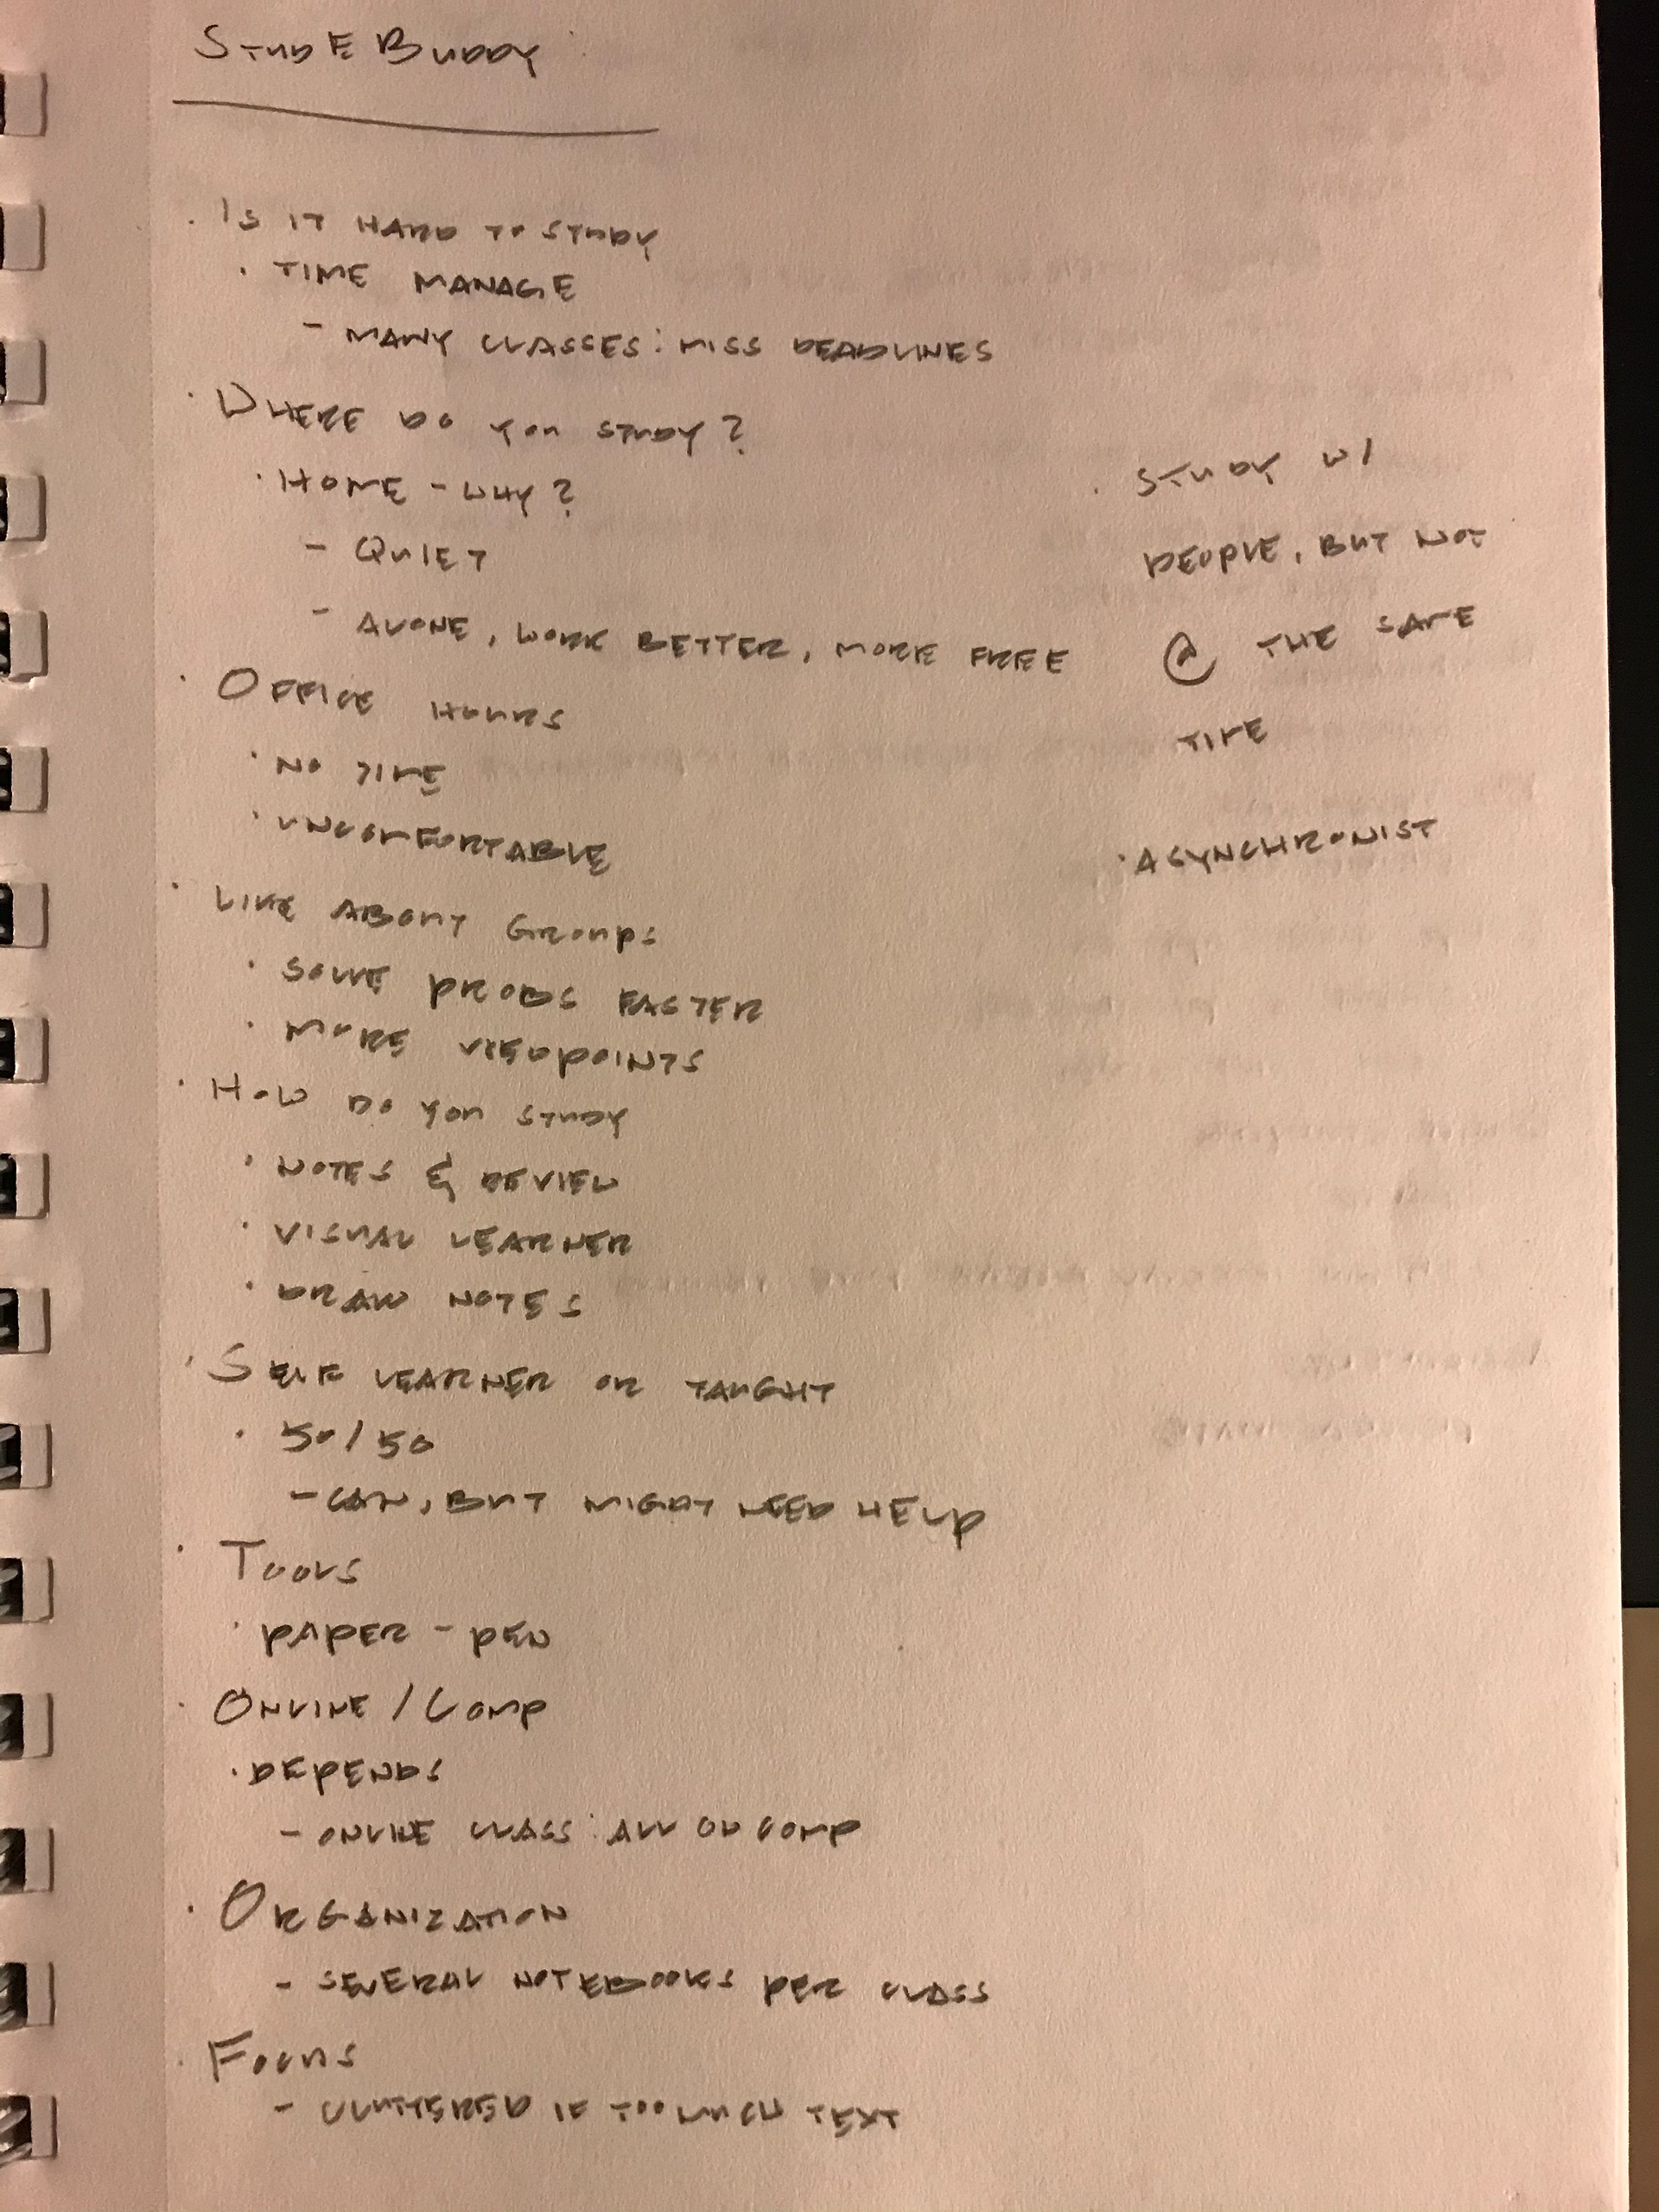 STUDE BUDDY
· IS IT HARD TO STUDY
· TIME MANAGE
- MANY CLASSES: MISS DEADLINES
· WHERE DO YOU STUDY?
· HOME - WHY?
- QUIET
- ALONE, WORK BETTER, MORE FREE
· OFFICE HOURS
· NO TIME
· UNCOMFORTABLE
· LIKE ABOUT GROUPS
· SOLVE PROBS FASTER
· MORE VIEWPOINTS
· HOW DO YOU STUDY
· NOTES & REVIEW
· VISUAL LEARNER
· DRAW NOTES
· SELF LEARNER OR TAUGHT
· 50/50
- CAN, BUT MIGHT NEED HELP
· TOOLS
· PAPER - PEN
· ONLINE / COMP
· DEPENDS
- ONLINE CLASS: ALL ON COMP
· ORGANIZATION
- SEVERAL NOTEBOOKS PER CLASS
· FOCUS
- CLUTTERED IF TOO MUCH TEXT
· STUDY W/
PEOPLE, BUT NOT
@ THE SAME
TIME
· ASYNCHRONIST